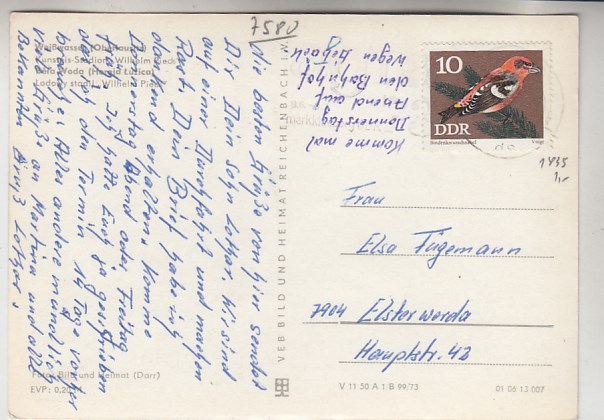 7580
Weißwasser (Oberlausitz)
Kunsteis-Stadion „Wilhelm Pieck“
Běła Woda (Hornja Łužica)
Lodowy stadion „Wilhelm Pieck“
Die besten Grüße von hier sendet
Dir Dein Sohn Lothar. Wir sind
auf einer Durchfahrt und machen
Rast. Dein Brief habe ich
dankend erhalten. Komme
Donnerstag Abend oder Freitag
früh. Ich hatte Euch ja geschrieben
das ich den Termin 14 Tage vorher
Alles andere mündlich
Viele Grüße an Martina und alle
Bekannten Gruß Lothar
Foto: Bild und Heimat (Darr)
EVP: 0,20 M
VEB BILD UND HEIMAT REICHENBACH i. V.
Komme mal
Donnerstag
Abend auf
den Bahnhof
wegen Gepäck
10
DDR
Bindenkreuzschnabel
Voigt
1435
1,-
Frau
Elsa Fügemann
7904 Elsterwerda
Hauptstr. 42
V 11 50 A 1/B 99/73
01 06 13 007